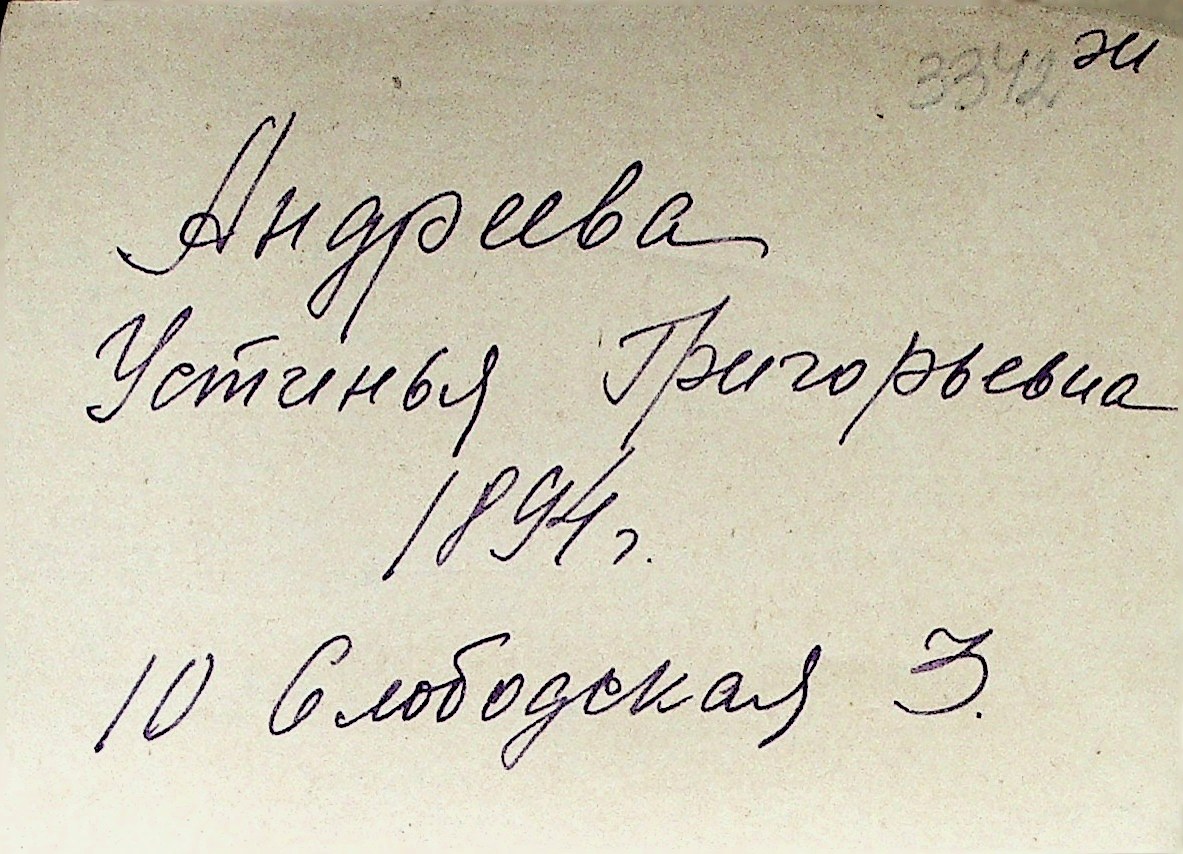 3342 ж
Андреева
Устинья Григорьевна
1894 г.
10 Слободская 3.